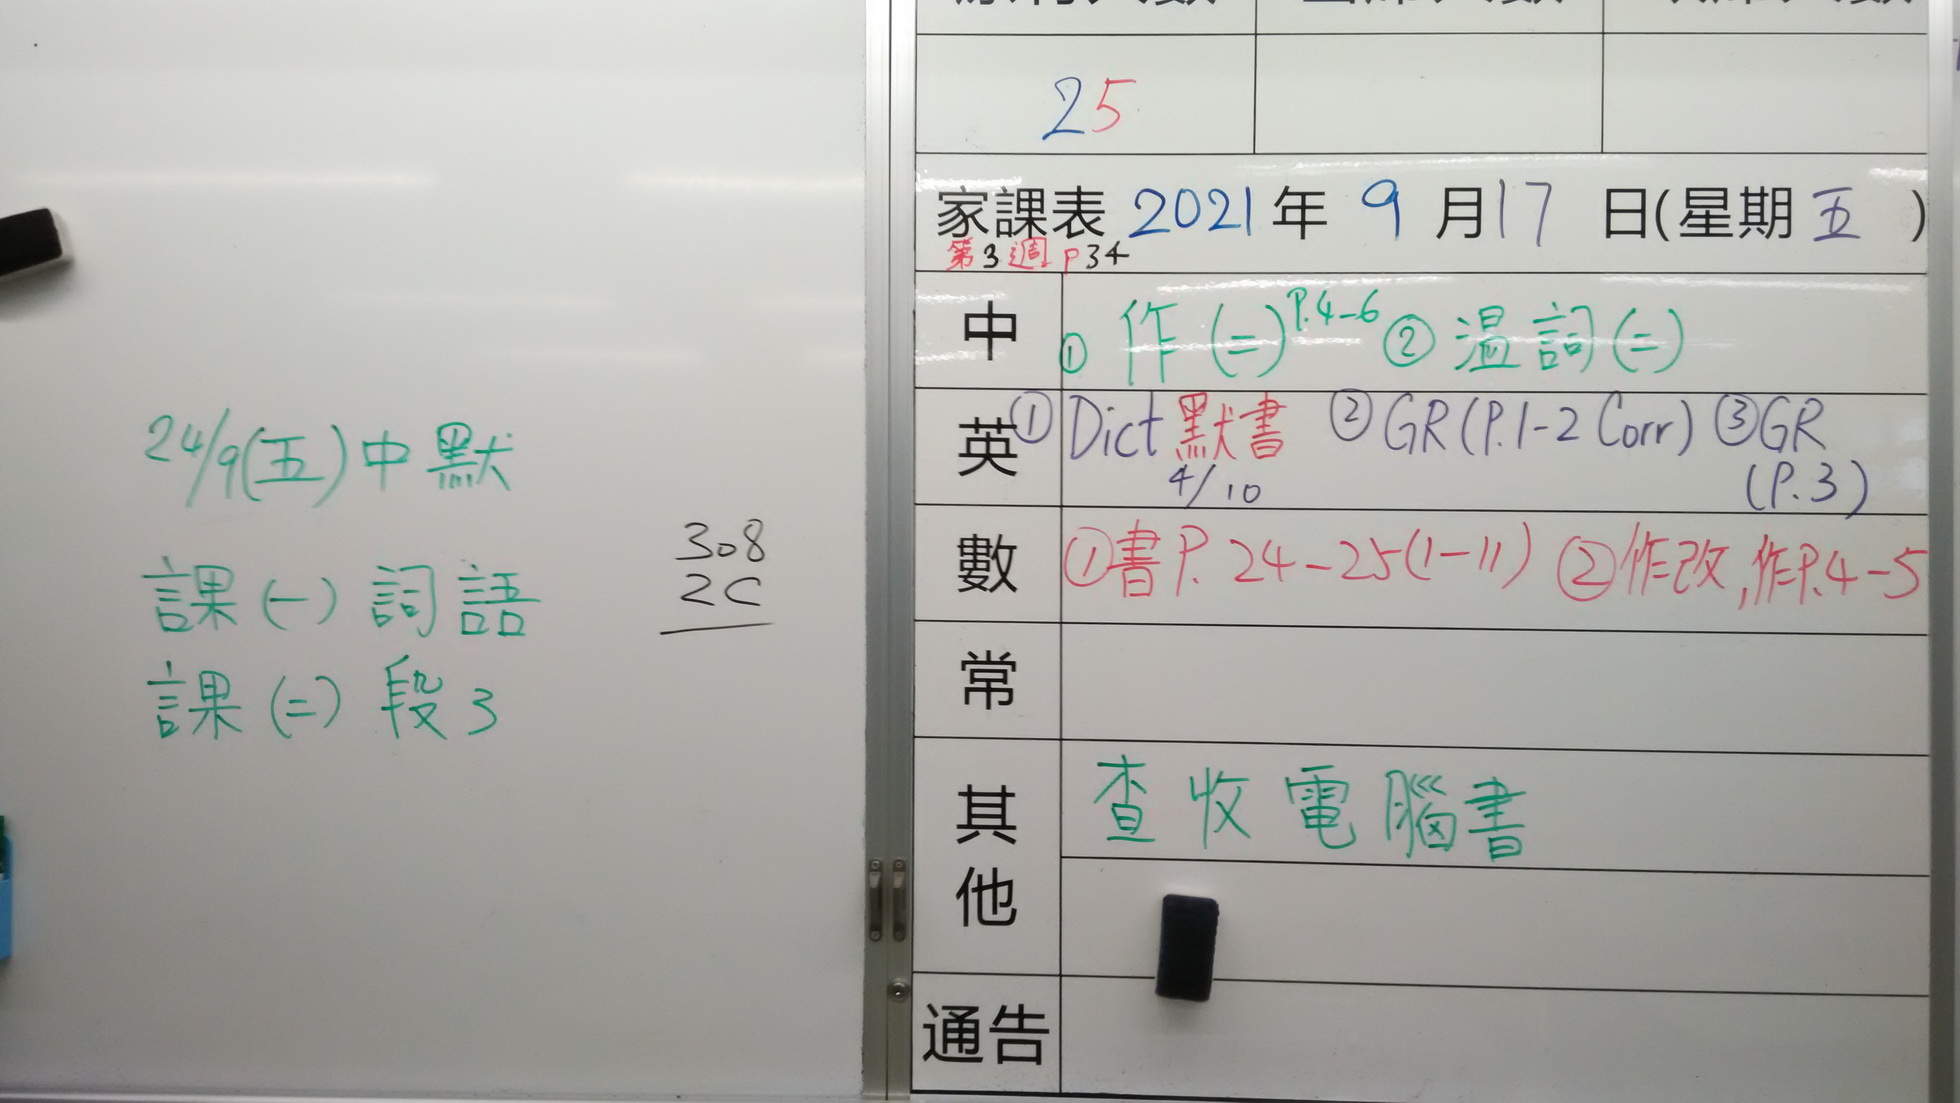 24/9(五)中默
課(一)詞語
課(二)段3
308
2C
25
家課表 2021年 9月17日(星期五)
第3週 P34
中 ① 作(二)P.4-6 ② 温詞(二)
英 ① Dict 默書 4/10 ② GR(P.1-2 Corr) ③ GR (P.3)
數 ① 書P.24-25(1-11) ② 作改,作P.4-5
常
其他 查收電腦書
通告